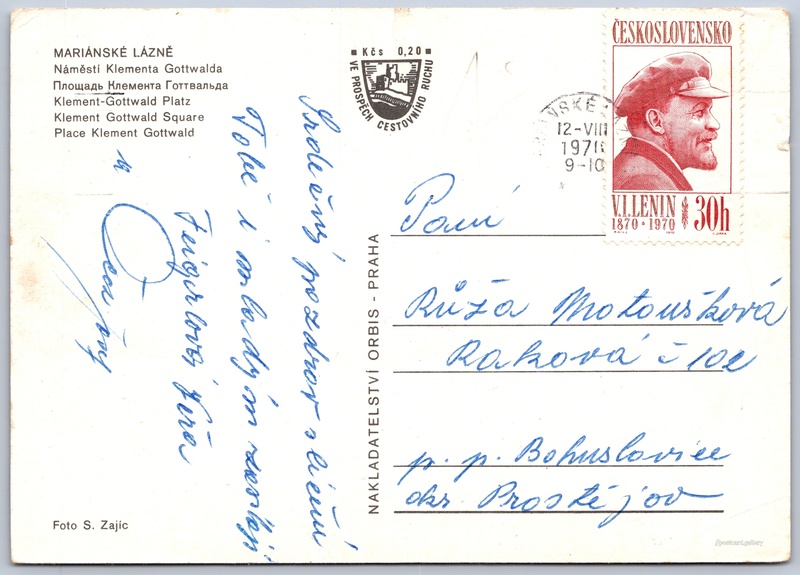 MARIÁNSKÉ LÁZNĚ
Náměstí Klementa Gottwalda
Площадь Клемента Готтвальда
Klement-Gottwald Platz
Klement Gottwald Square
Place Klement Gottwald
Kčs 0,20
VE PROSPĚCH CESTOVNÍHO RUCHU
ČESKOSLOVENSKO
V.I.LENIN
1870 · 1970
30h
12-VIII
1970
9-10
Srdečný pozdrav s léčení
Tobě i mladým zasílají
Feigerlová Věra
a
NAKLADATELSTVÍ ORBIS - PRAHA
Paní
Růža Matoušková
Raková č 102
p. p. Bohuslavice
okr. Prostějov
Foto S. Zajíc